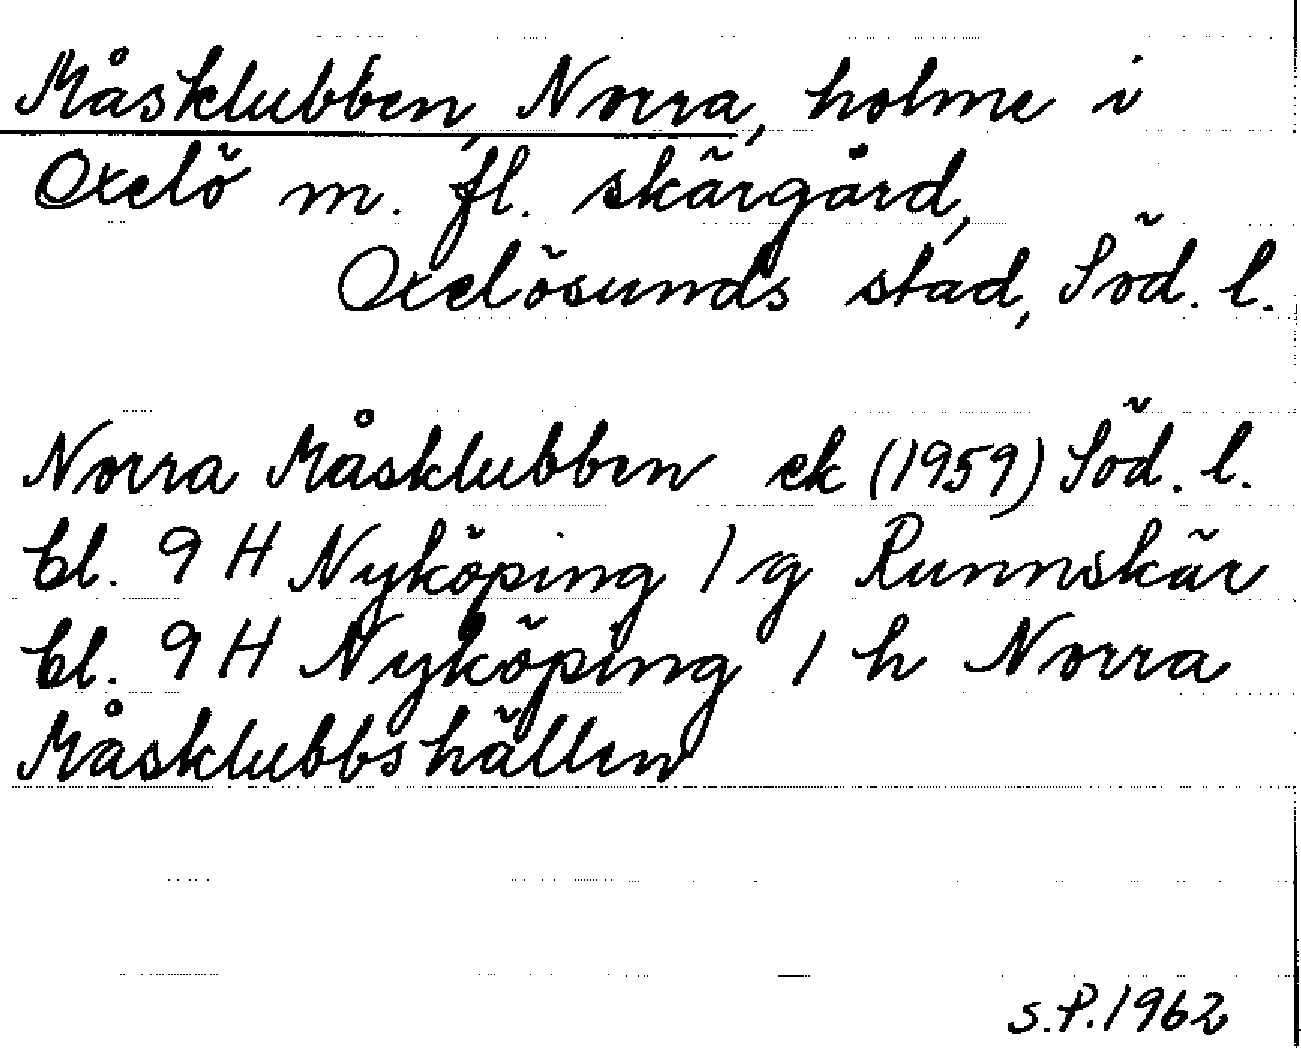 Måsklubben, Norra, holme i
Oxelö m. fl. skärgård,
Oxelösunds stad, Söd. l.
Norra Måsklubben ek (1959) Söd. l.
bl. 9 H Nyköping 1 g Runnskär
bl. 9 H Nyköping 1 h Norra
Måsklubbshällen
S.P. 1962